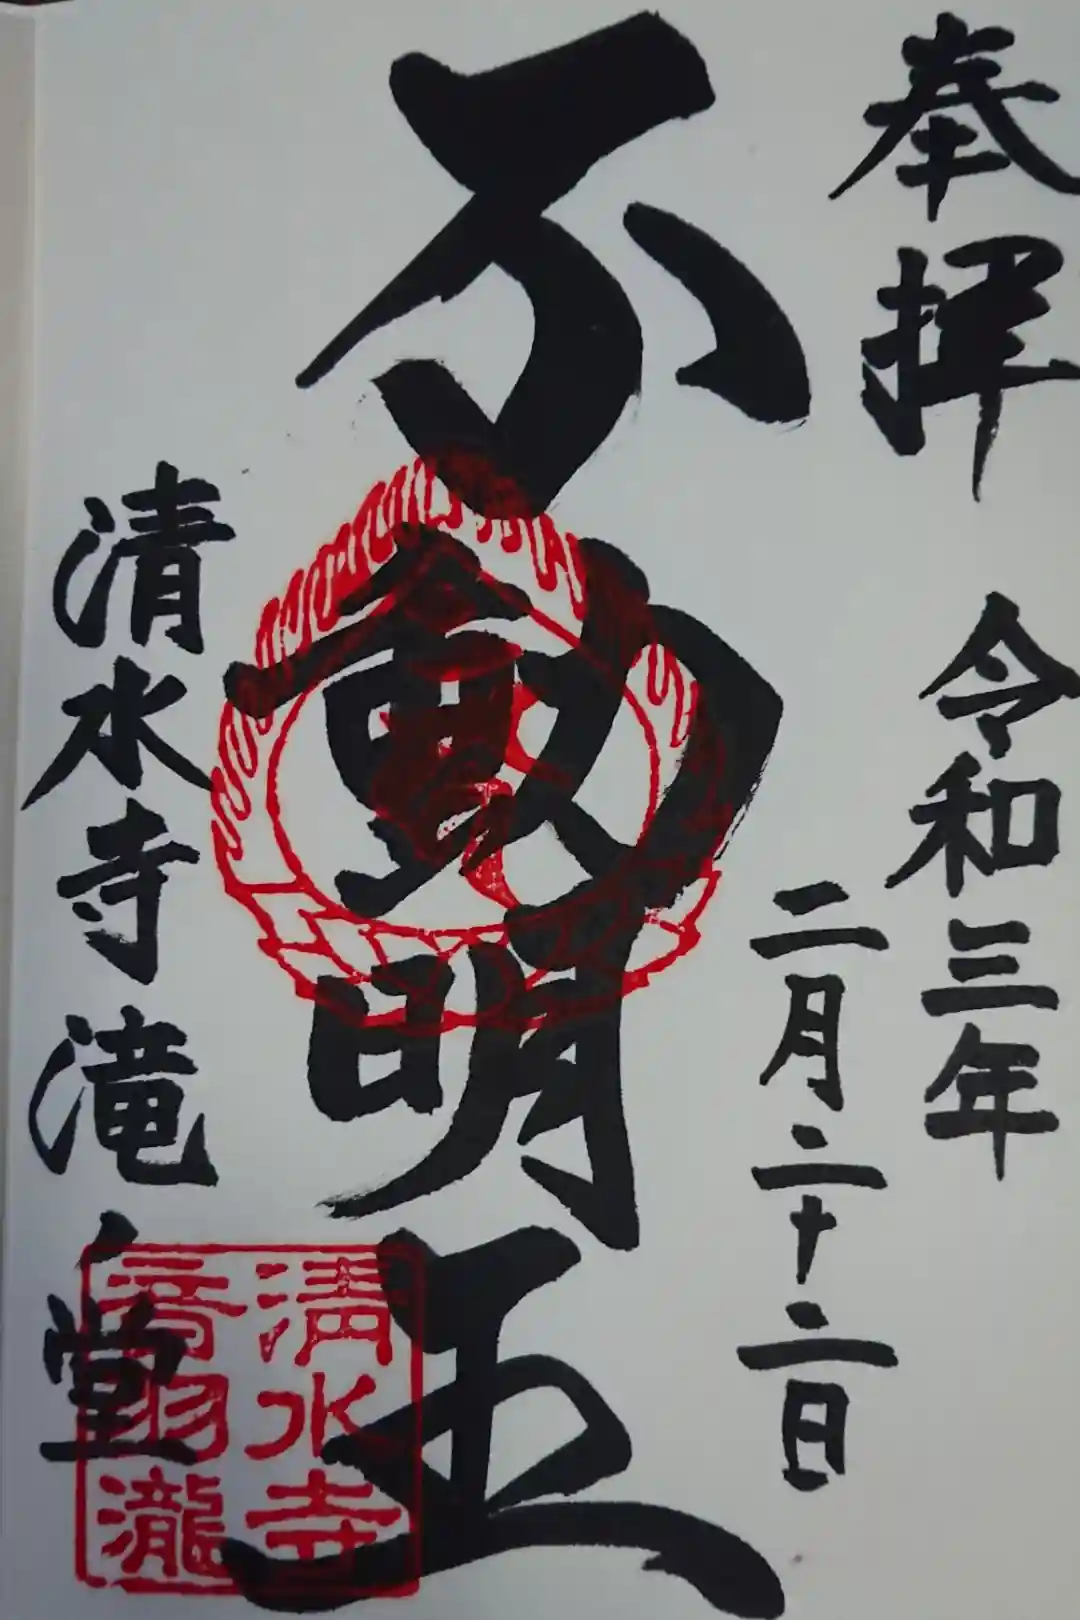 奉拝
令和三年
二月二十二日
不動明王
清水寺滝堂
清水寺
音羽瀧